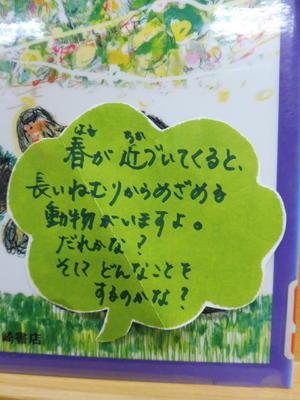 春が近づいてくると、
はる ちか
長いねむりからめざめる
動物がいますよ。
だれかな？
そして どんなことを
するのかな？
崎書店